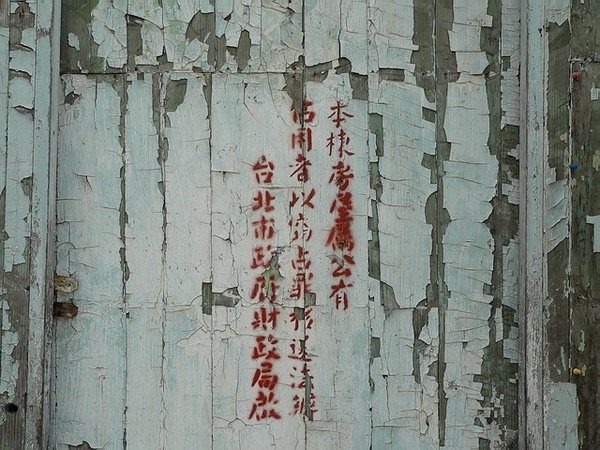 本棟房屋屬公有
佔用者以竊占罪移送法辦
台北市政府財政局啟